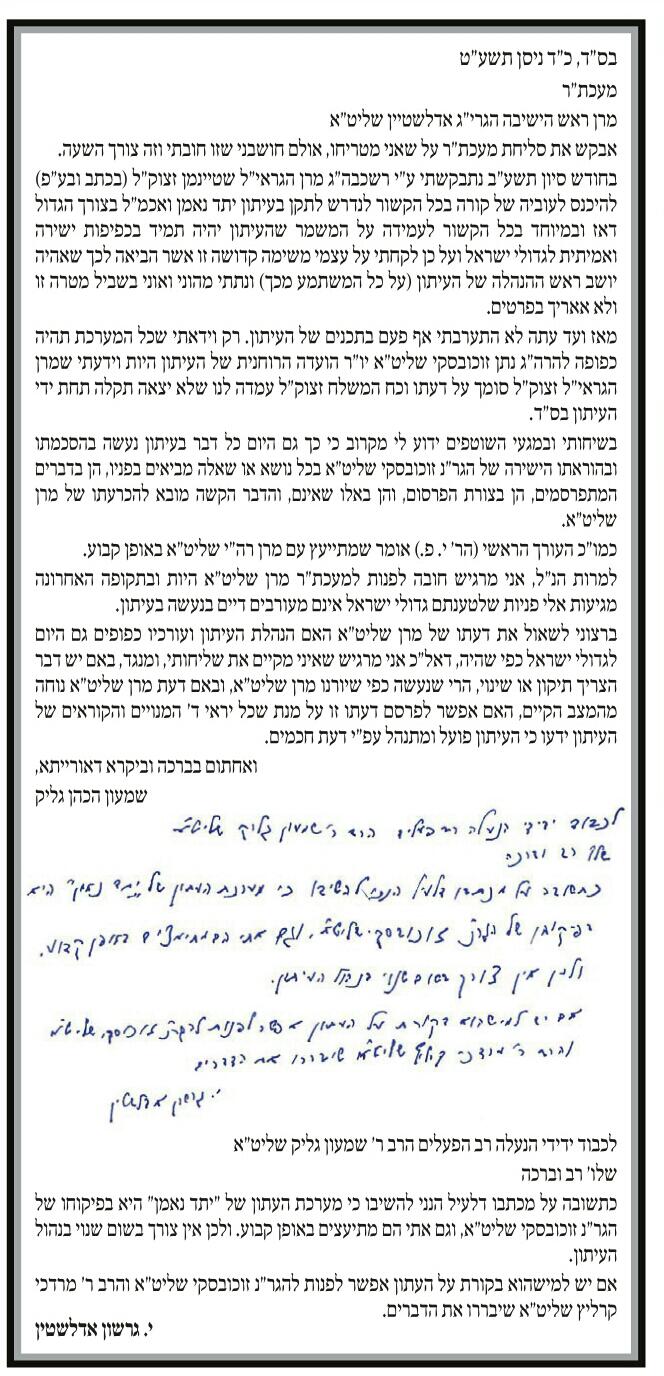 בס"ד, כ"ד ניסן תשע"ט
מעכת"ר
מרן ראש הישיבה הגרי"ג אדלשטיין שליט"א
אבקש את סליחת מעכת"ר על שאני מטריחו, אולם חושבני שזו חובתי וזה צורך השעה.
בחודש סיון תשע"ב נתבקשתי ע"י רשכבה"ג מרן הגראי"ל שטיינמן זצוק"ל (בכתב ובע"פ)
להיכנס לעוביה של קורה בכל הקשור לנדרש לתקן בעיתון יתד נאמן ואכמ"ל בצורך הגדול
דאז ובמיוחד בכל הקשור לעמידה על המשמר שהעיתון יהיה תמיד בכפיפות ישירה
ואמיתית לגדולי ישראל ועל כן לקחתי על עצמי משימה קדושה זו אשר הביאה לכך שאהיה
יושב ראש ההנהלה של העיתון (על כל המשתמע מכך) ונתתי מהוני ואוני בשביל מטרה זו
ולא אאריך בפרטים.
מאז ועד עתה לא התערבתי אף פעם בתכנים של העיתון. רק וידאתי שכל המערכת תהיה
כפופה להרה"ג נתן זוכובסקי שליט"א יו"ר הועדה הרוחנית של העיתון היות וידעתי שמרן
הגראי"ל זצוק"ל סומך על דעתו וכח המשלח זצוק"ל עמדה לנו שלא יצאה תקלה תחת ידי
העיתון בס"ד.
בשיחותי ובמגעי השוטפים ידוע לי מקרוב כי כך גם היום כל דבר בעיתון נעשה בהסכמתו
ובהוראתו הישירה של הגר"נ זוכובסקי שליט"א בכל נושא או שאלה מביאים בפניו, הן בדברים
המתפרסמים, הן בצורת הפרסום, והן באלו שאינם, והדבר הקשה מובא להכרעתו של מרן
שליט"א.
כמו"כ העורך הראשי (הר' י. פ.) אומר שמתייעץ עם מרן רה"י שליט"א באופן קבוע.
למרות הנ"ל, אני מרגיש חובה לפנות למעכת"ר מרן שליט"א היות ובתקופה האחרונה
מגיעות אלי פניות שלטענתם גדולי ישראל אינם מעורבים דיים בנעשה בעיתון.
ברצוני לשאול את דעתו של מרן שליט"א האם הנהלת העיתון ועורכיו כפופים גם היום
לגדולי ישראל כפי שהיה, דאל"כ אני מרגיש שאיני מקיים את שליחותי, ומנגד, באם יש דבר
הצריך תיקון או שינוי, הרי שנעשה כפי שיורנו מרן שליט"א, ובאם דעת מרן שליט"א נוחה
מהמצב הקיים, האם אפשר לפרסם דעתו זו על מנת שכל יראי ד' המנויים והקוראים של
העיתון ידעו כי העיתון פועל ומתנהל עפ"י דעת חכמים.
ואחתום בברכה וביקרא דאורייתא,
שמעון הכהן גליק
לכבוד ידידי הנעלה רב הפעלים הרב ר' שמעון גליק שליט"א
שלו' רב וברכה
כתשובה על מכתבו דלעיל הנני להשיבו כי מערכת העתון של "יתד נאמן" היא
בפיקוחו של הגר"נ זוכובסקי שליט"א, וגם אתי הם מתיעצים באופן קבוע.
ולכן אין צורך בשום שנוי בנהול העיתון.
אם יש למישהוא בקורת על העתון אפשר לפנות להגר"נ זוכובסקי שליט"א
והרב ר' מרדכי קרליץ שליט"א שיבררו את הדברים
י. גרשון אדלשטין
לכבוד ידידי הנעלה רב הפעלים הרב ר' שמעון גליק שליט"א
שלו' רב וברכה
כתשובה על מכתבו דלעיל הנני להשיבו כי מערכת העתון של "יתד נאמן" היא בפיקוחו של
הגר"נ זוכובסקי שליט"א, וגם אתי הם מתיעצים באופן קבוע. ולכן אין צורך בשום שנוי בנהול
העיתון.
אם יש למישהוא בקורת על העתון אפשר לפנות להגר"נ זוכובסקי שליט"א והרב ר' מרדכי
קרליץ שליט"א שיבררו את הדברים.
י. גרשון אדלשטין